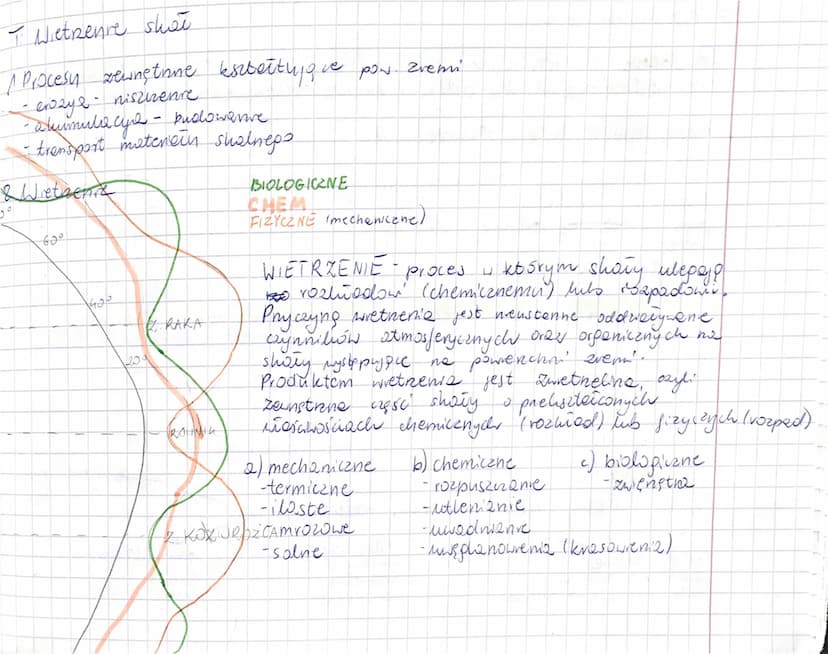 T Wietrzenie skał
1 Procesy zewnętrzne kształtujące pow. ziemi
- erozja - niszczenie
- akumulacja - budowanie
- transport materiału skalnego
2 Wietrzenie
BIOLOGICZNE
CHEM
FIZYCZNE (mechaniczne)
60°
40°
Z. RAKA
20°
RÓWNIK
Z. KOZIOROŻCA
WIETRZENIE - proces w którym skały ulegają
rozkładowi (chemicznemu) lub rozpadowi.
Przyczyną wietrzenia jest nieustanne oddziaływanie
czynników atmosferycznych oraz organicznych na
skały występujące na powierzchni ziemi.
Produktem wietrzenia jest zwietrzelina, czyli
zewnętrzna część skały o przekształconych
właściwościach chemicznych (rozkład) lub fizycznych (rozpad)
a) mechaniczne
- termiczne
- ilaste
- mrozowe
- solne
b) chemiczne
- rozpuszczanie
- utlenianie
- uwadnianie
- uwęglanowienia (krasowienia)
c) biologiczne
- zwierzęta